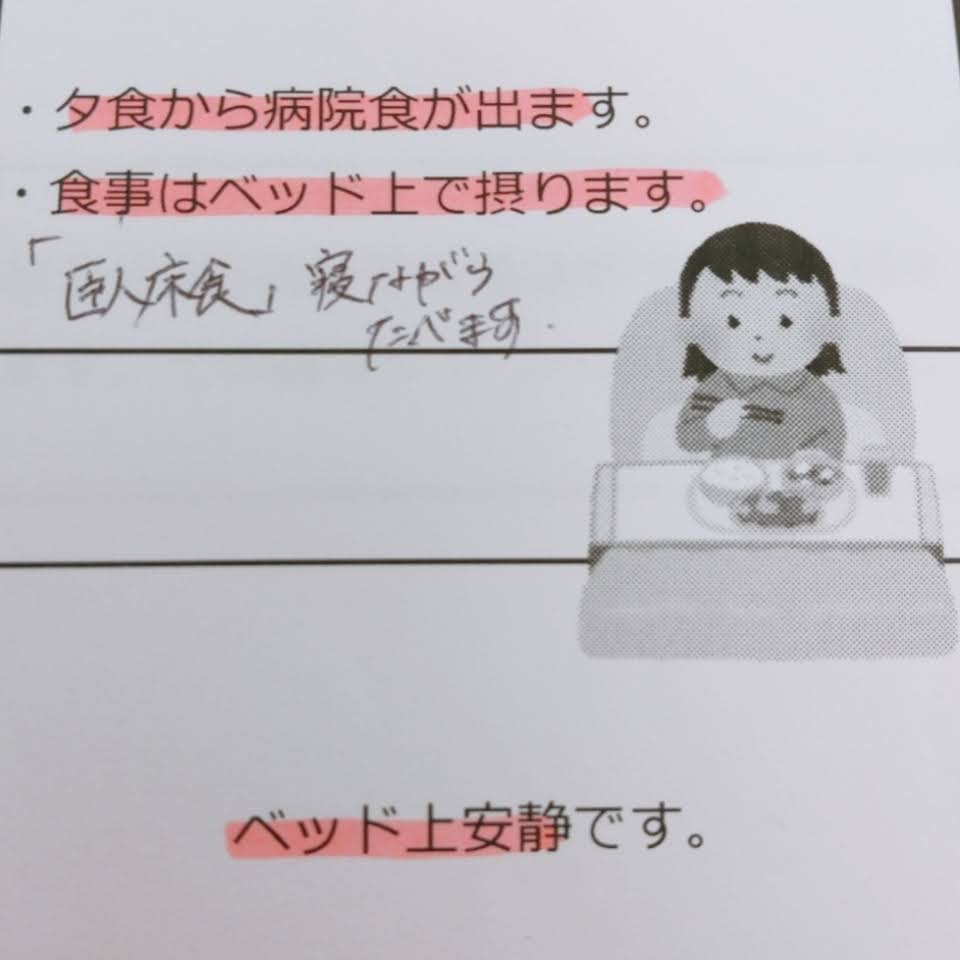 ・夕食から病院食が出ます。
・食事はベッド上で摂ります。
「臥床食」寝ながら
たべます.
ベッド上安静です。